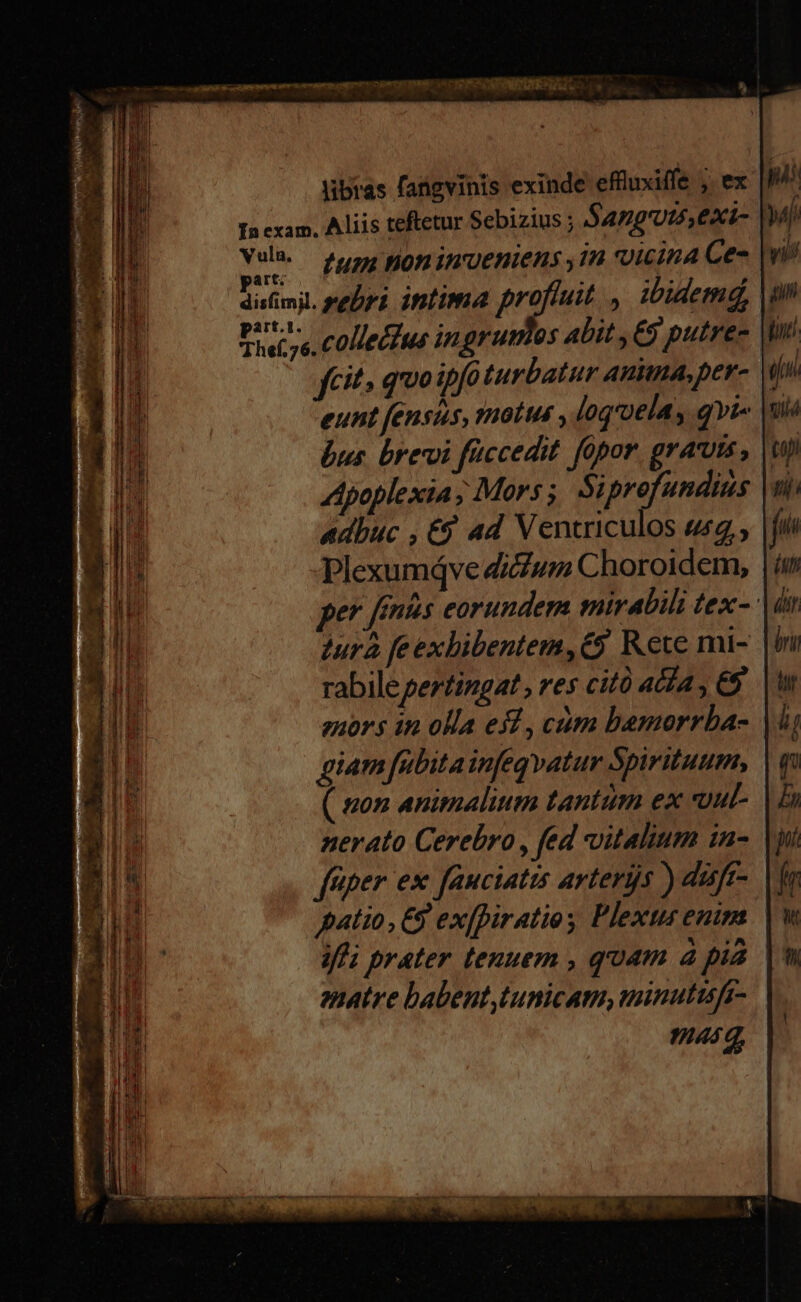 libras ſangvinis exinde effluxiſſe ; ex
Aliis teſtetur Sebizius ; Sangvis, exi-
tum non inveniens, in vicina Ce-
rebri intima profluit , ibidemq́,
collectus in grumos abit , & putre-
ſcit, qvo ipſo turbatur anima, per-
eunt ſensùs, motus , loqvela, qvi-
bus brevi ſuccedit ſopor gravis ,
Apoplexia, Mors ; Si profundiùs
adhuc , & ad Ventriculos usq, ,
Plexumq́ve dictum Choroidem,
per ſinùs eorundem mirabili tex-
turâ ſe exhibentem, & Rete mi-
rabile pertingat , res citò acta , &
mors in olla est , cùm hæmorrha-
giam ſubita inſeqvatur Spirituum,
( non animalium tantùm ex vul-
nerato Cerebro , ſed vitalium in-
ſuper ex ſauciatis arterijs ) disſi-
patio, & exſpiratio ; Plexus enim
iſti præter tenuem , qvam à piâ
matre habent, tunicam, minutisſi-
masq́,
In exam.
Vuln.
part.
disſimil.
part.1.
Theſ.76.